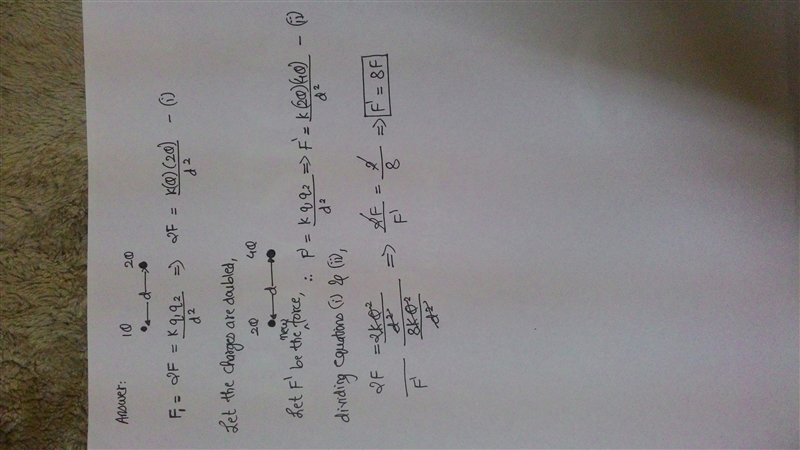 Answer:
1Q 2Q
d
F₁ = 2F = K q₁ q₂ / d² => 2F = K(Q)(2Q) / d² – (i)
Let the charges are doubled,
2Q 4Q
d
Let F' be the new force, ∴ F' = K q₁ q₂ / d² => F' = K(2Q)(4Q) / d² – (ii)
dividing equations (i) & (ii),
2F / F' = (2KQ² / d²) / (8KQ² / d²) => 2F / F' = 2 / 8 => F' = 8F